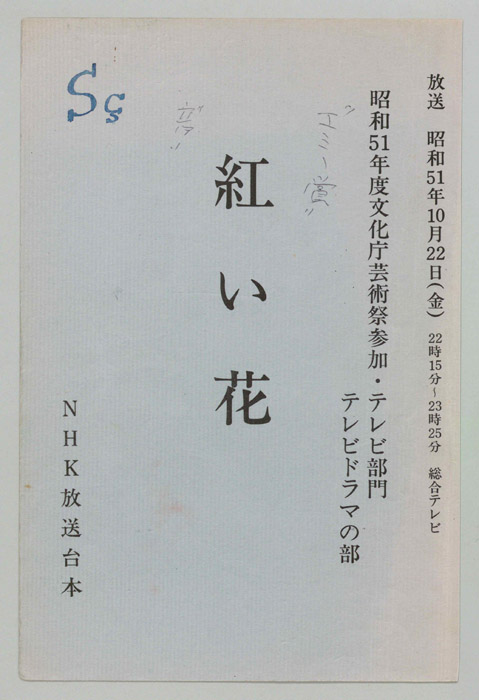 放送 昭和51年10月22日(金) 22時15分~23時25分 総合テレビ
昭和51年度文化庁芸術祭参加・テレビ部門
テレビドラマの部
"エミー賞"
紅い花
NHK放送台本